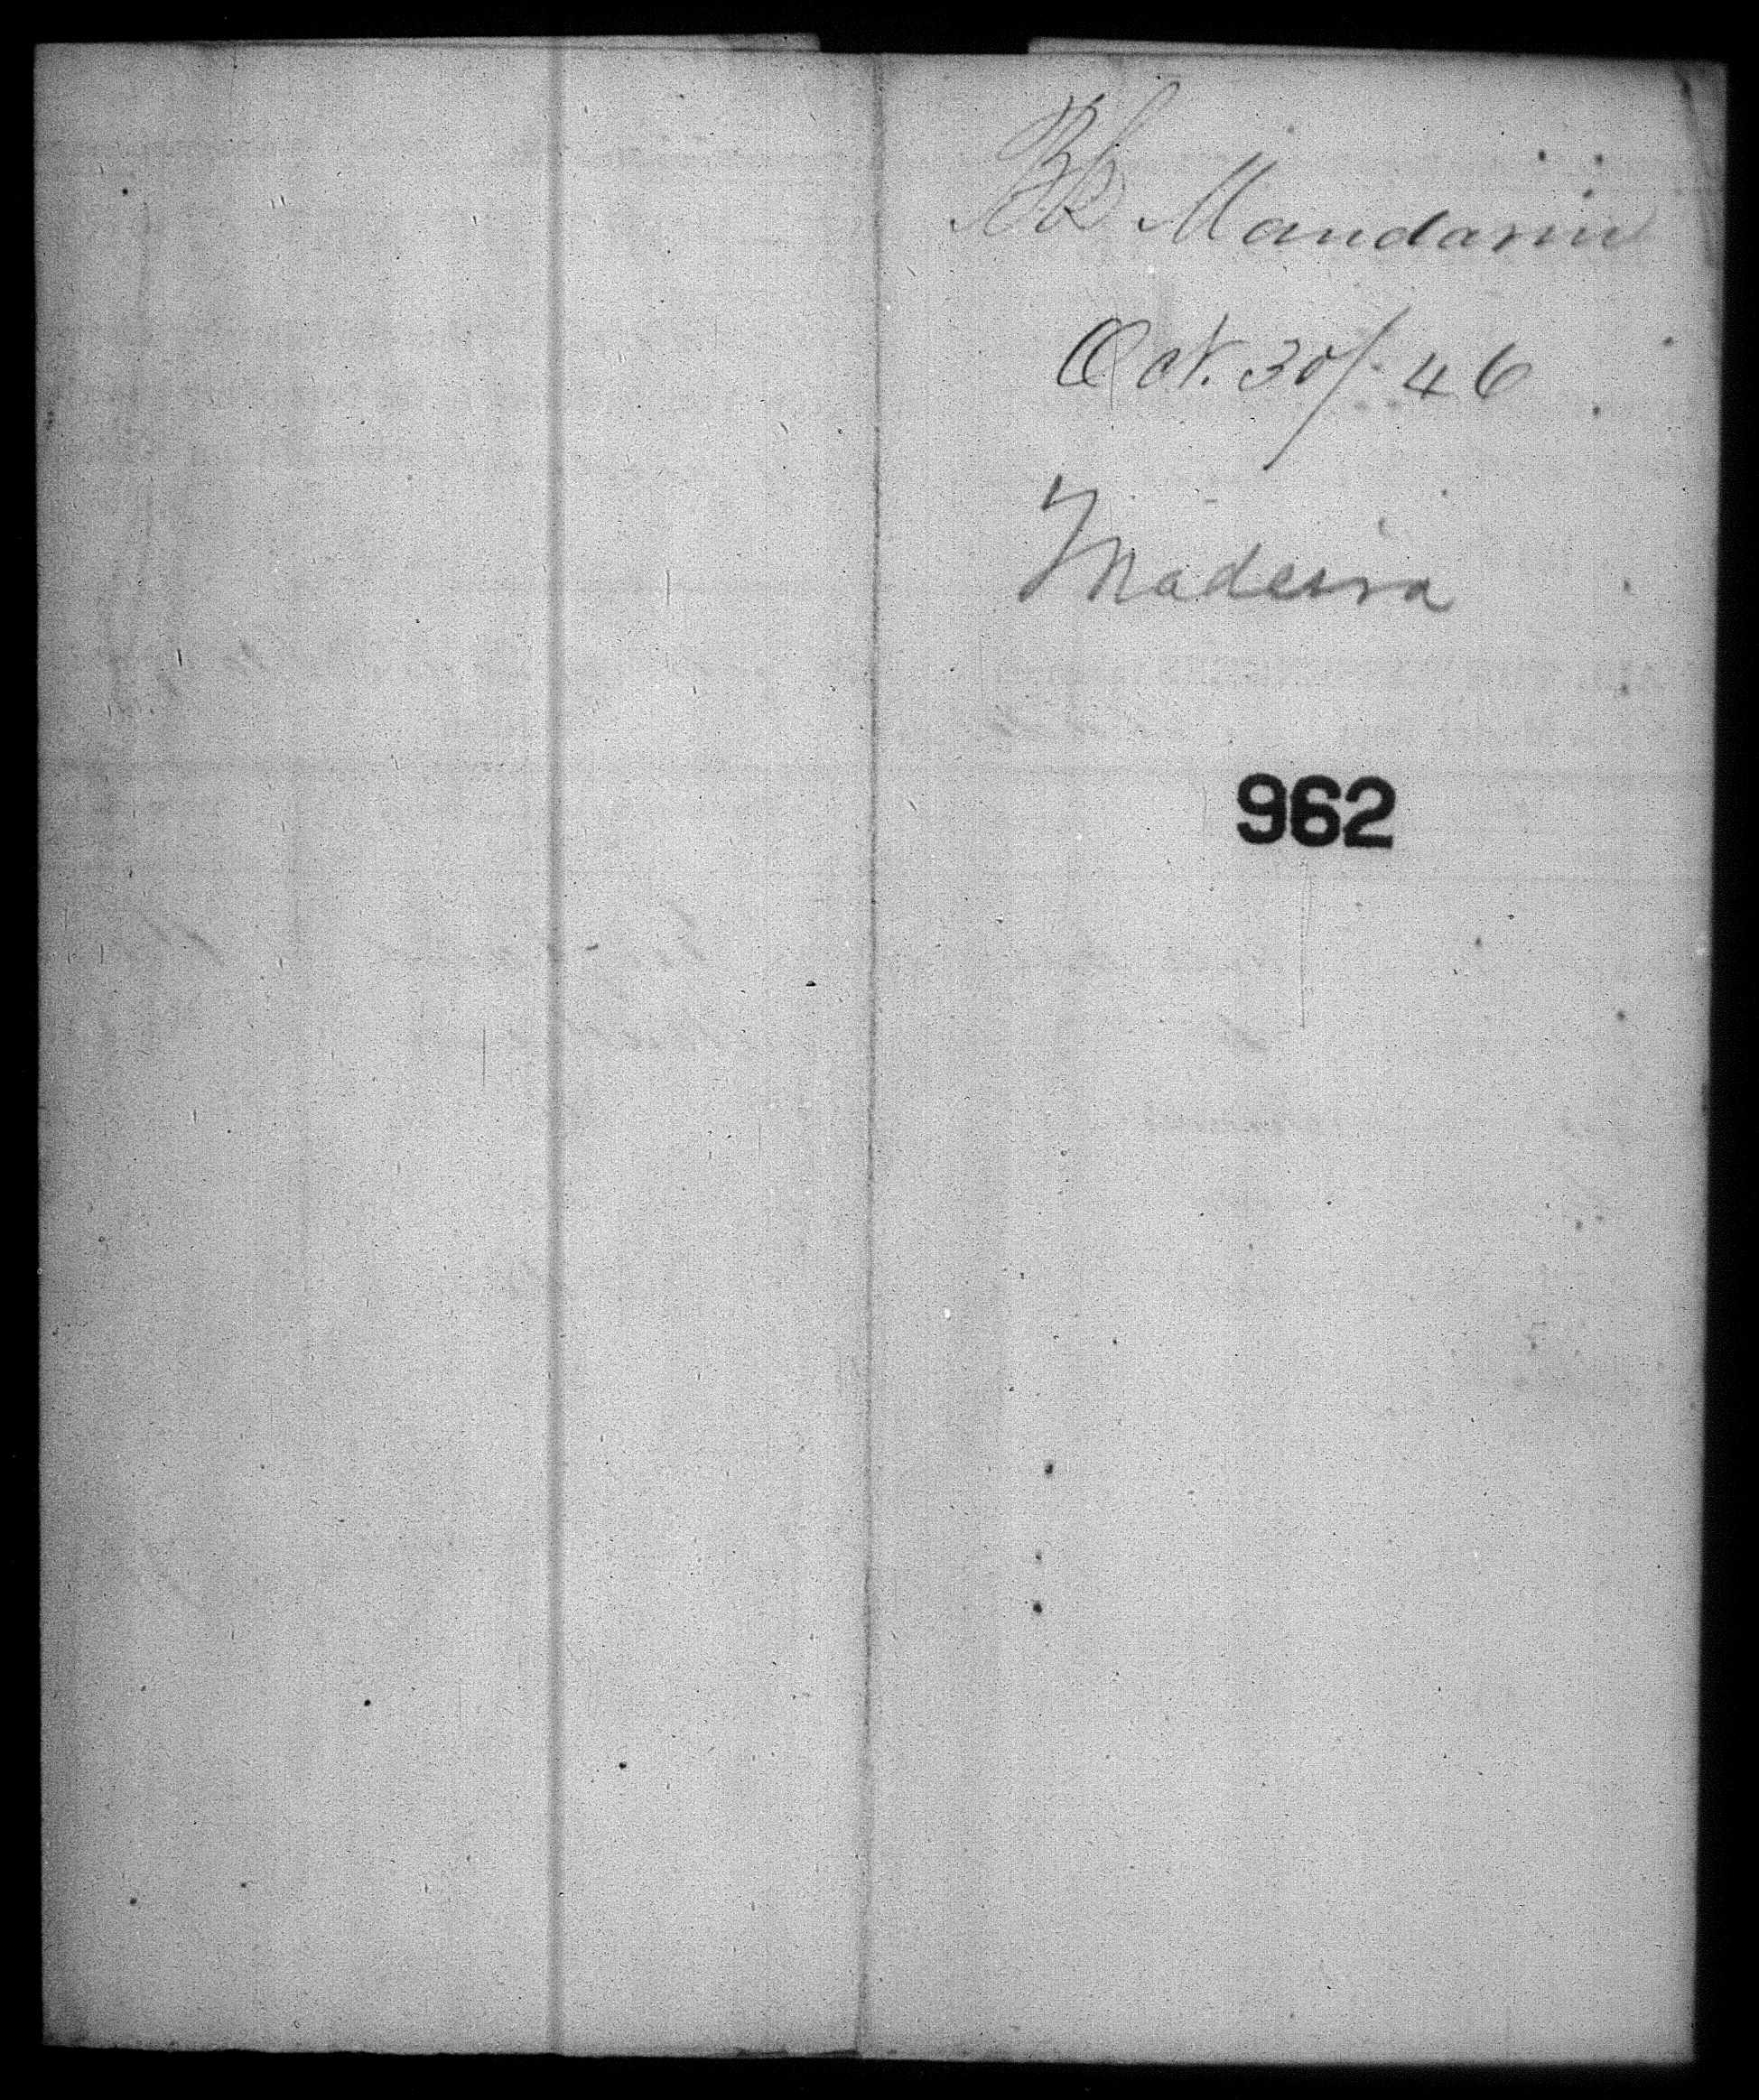 Bk Mandarin
Oct. 30/46
Madeira
962